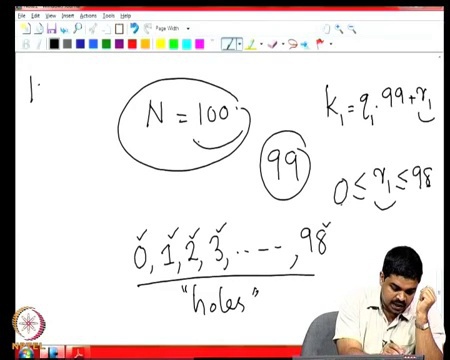 File Edit View Insert Actions Tools Help
Page Width
1.
N = 100
k₁ = q₁ · 99 + r₁
99
0 ≤ r₁ ≤ 98
0, 1, 2, 3, ----, 98
"holes"